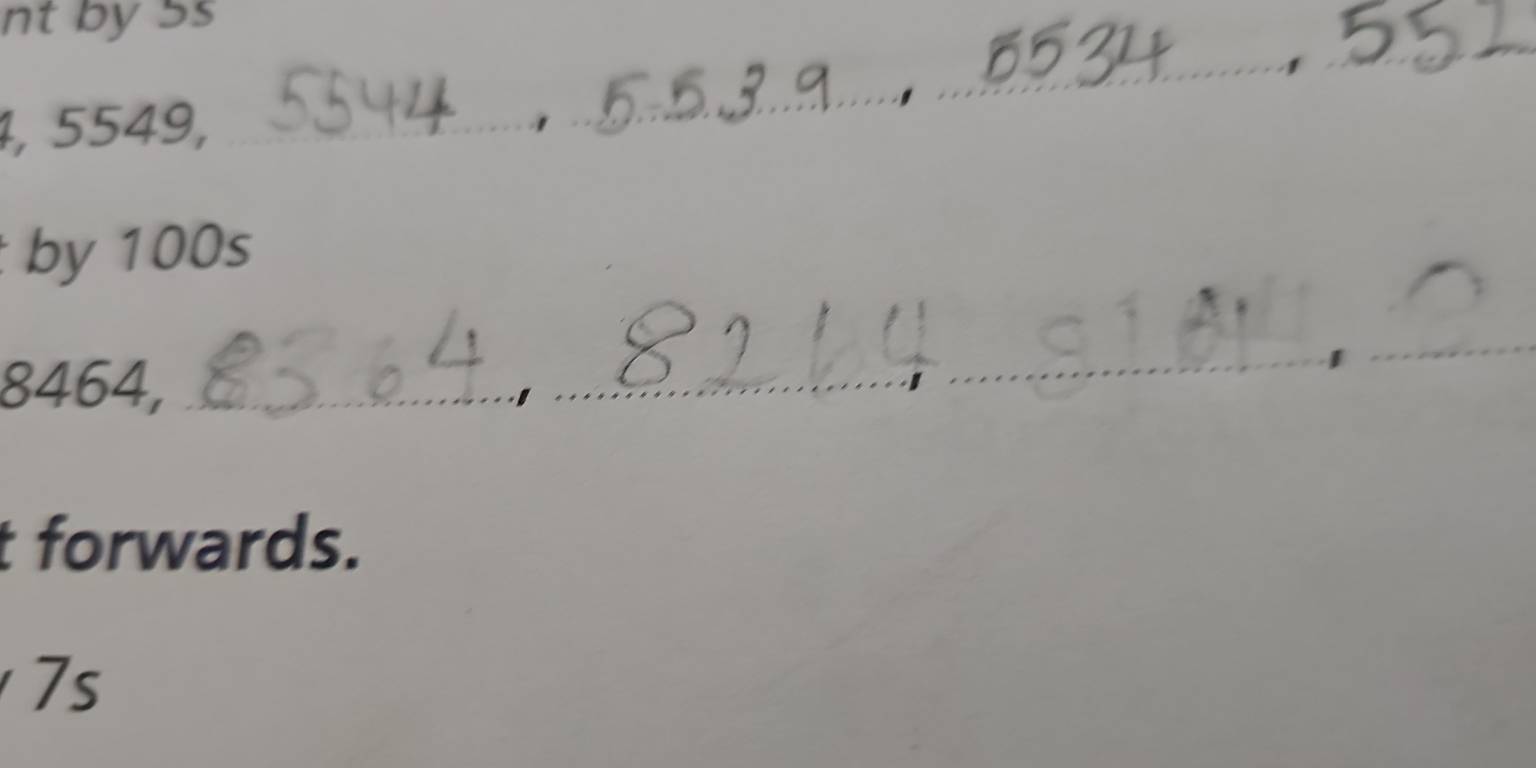 nt by 5s
4, 5549, 5544, 5539, 5534, 552
t by 100s
8464, 8364, 8264,
t forwards.
7s